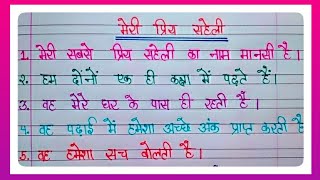 मेरी प्रिय सहेली
1. मेरी सबसे प्रिय सहेली का नाम मानसी है।
2. हम दोनों एक ही कक्षा में पढ़ते हैं।
3. वह मेरे घर के पास ही रहती है।
4. वह पढ़ाई में हमेशा अच्छे अंक प्राप्त करती है
5. वह हमेशा सच बोलती है।